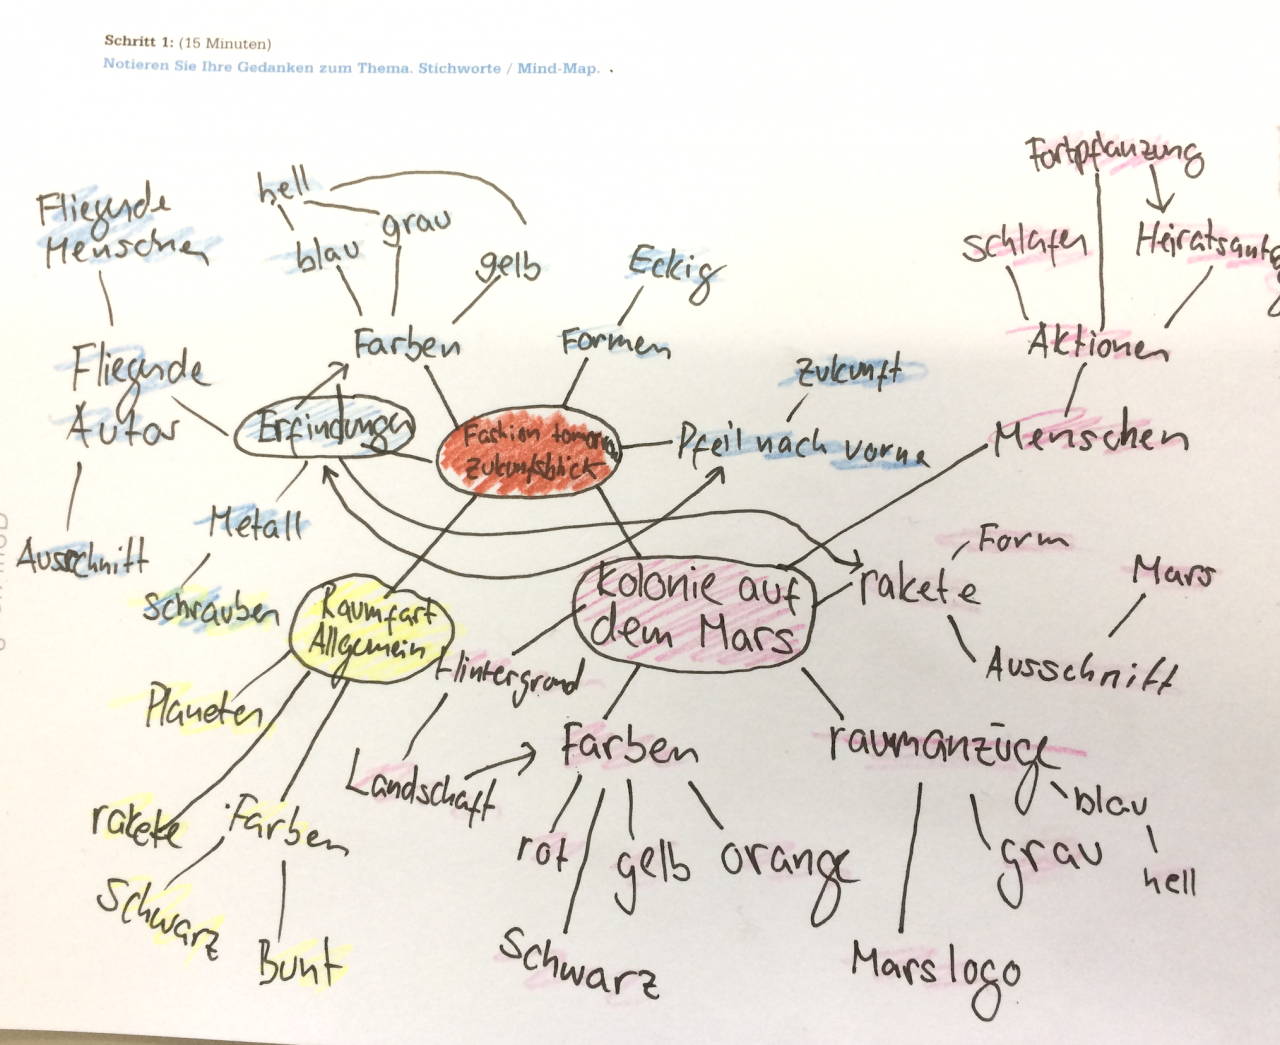 Schritt 1: (15 Minuten)
Notieren Sie Ihre Gedanken zum Thema. Stichworte / Mind-Map.
Fortpflanzung
hell
Fliegende
Menschen
grau
blau
schlafen
gelb
Eckig
Farben
Formen
Aktionen
Fliegende
Autos
Zukunft
Erfindungen
Fashion
Zukunftsblick
Pfeil nach vorne
Menschen
Metall
Ausschnitt
Form
Schrauben
Raumfart
Allgemein
Kolonie auf
dem Mars
rakete
Mars
Ausschnitt
Hintergrund
Planeten
Farben
raumanzüge
Landschaft
rakete
Farben
blau
rot
gelb
orange
grau
hell
Schwarz
Bunt
Schwarz
Marslogo